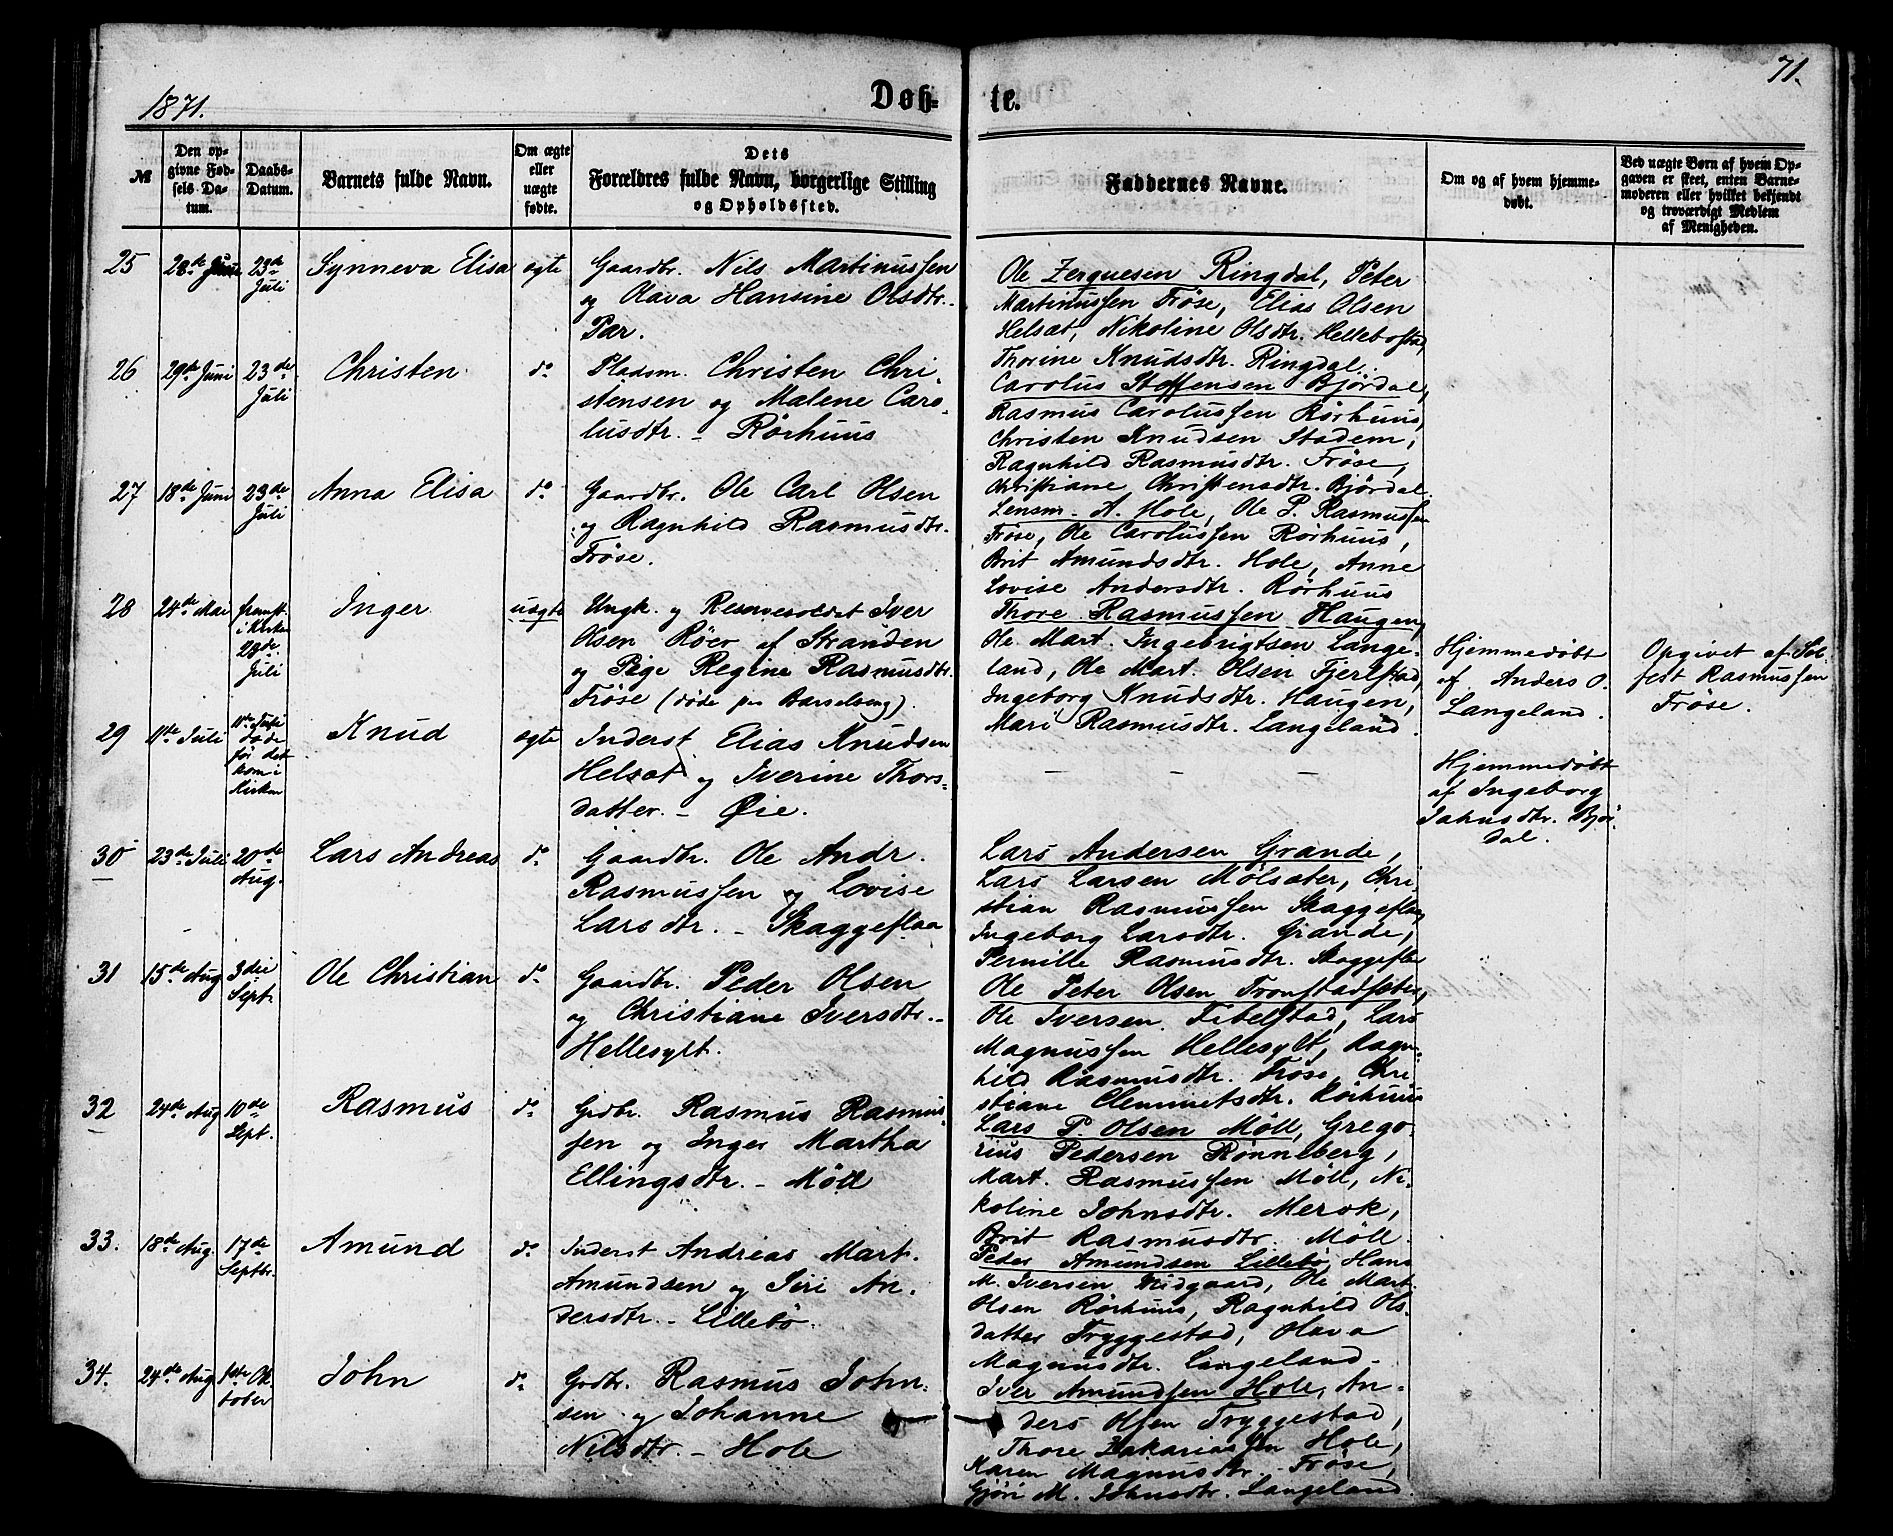 71.
1871.
Døb- te.
№
Den op-
givne Fød-
sels Da-
tum.
Daabs-
Datum.
Barnets fulde Navn.
Om ægte
eller
uægte
fødte.
Dets
Forældres fulde Navn, borgerlige Stilling
og Opholdssted.
Faddernes Navne.
Om og af hvem hjemme-
døbt.
Ved uægte Børn af hvem Op-
gaven er skeet, enten Barne-
moderen eller hvilket bekjendt
og troværdigt Medlem
af Menigheden.
25
28de Juni
23de
Juli
Synneva Elisa
ægte
Gaardbr. Nils Martinussen
og Olava Hansine Olsdtr. -
Pær.
Ole Zerguesen Ringdal, Peter
Martinussen Frøse, Elias Olsen
Helsæt, Nikoline Olsdtr. Hellebostad,
Thorine Knudsdtr. Ringdal.
26
29de Juni
23de
Juli
Christen
do
Pladsm. Christen Chri-
stensen og Malene Caro-
lusdtr. - Rørhuus
Carolus Stoffensen Bjørdal,
Rasmus Carolussen Rørhuus,
Christen Knudsen Stadem,
Ragnhild Rasmusdtr. Frøse,
Christiane Christensdtr. Bjørdal.
27
18de Juni
23de
Juli
Anna Elisa
do
Gaardbr. Ole Carl Olsen
og Ragnhild Rasmusdtr.
Frøse.
Lensm. A. Hole, Ole P. Rasmussen
Frøse, Ole Carolussen Rørhuus,
Brit Amundsdtr. Hole, Anne
Lovise Andersdtr. Rørhuus
28
24de Mai
fremst.
i Kirken
23de
Juli
Inger
uægte
Ungk. og Reservesoldat Iver
Olsen Røer af Stranden
og Pige Regine Rasmusdtr.
Frøse (døde paa Barselseng).
Thore Rasmussen Haugen,
Ole Mart. Ingebrigtsen Lange-
land, Ole Mart. Olsen Fjerlstad,
Ingeborg Knudsdtr. Haugen,
Mari Rasmusdtr. Langeland.
Hjemmedøbt
af Anders O.
Langeland.
Opgivet af Sol-
fest Rasmussen
Frøse.
29
11te Juli
11te Juli
døde
før det
kom i
Kirken
Knud
ægte
Inderst Elias Knudsen
Helsæt og Iverine Thors-
datter. - Øie.
— — —
Hjemmedøbt
af Ingeborg
Jahnsdtr. Bjør-
dal.
30
23de Juli
20de
Aug.
Lars Andreas
do
Gaardbr. Ole Andr.
Rasmussen og Lovise
Larsdtr. - Skaggeflaa
Lars Andersen Grande,
Lars Larsen Mølsæter, Chri-
stian Rasmussen Skaggeflaa,
Ingeborg Larsdtr. Grande,
Pernille Rasmusdtr. Skaggeflaa
31
15de Aug
3die
Sept.
Ole Christian
do
Gaardbr. Peder Olsen
og Christiane Iversdtr. -
Hellesylt.
Ole Peter Olsen Tronstadsæter,
Ole Iversen Fibelstad, Lars
Magnussen Hellesylt, Ragn-
hild Rasmusdtr. Frøse, Chri-
stiane Clemmetsdtr. Rørhuus
32
24de Aug
10de
Sept.
Rasmus
do
Grdbr. Rasmus Rasmus-
sen og Inger Martha
Ellingsdtr. - Møll
Lars P. Olsen Møll, Grego-
rius Pedersen Rønneberg,
Mart. Rasmussen Møll, Ni-
koline Johnsdtr. Merok,
Brit Rasmusdtr. Møll.
33.
18de Aug.
17de
Septbr.
Amund
do
Inderst Andreas Mart.
Amundsen og Siri An-
dersdtr. - Lillebø.
Peder Amundsen Lillebø, Hans
M. Iversen Midgaard, Ole Mart.
Olsen Rørhuus, Ragnhild Ols-
datter Tryggestad, Olava
Magnusdtr. Langeland.
34.
24de Aug
1ste Ok-
tober
John
do
Grdbr. Rasmus John-
sen og Johanne
Nilsdtr. - Hole
Iver Amundsen Hole, An-
ders Olsen Tryggestad,
Thore Zakariassen Hole,
Karen Magnusdtr. Frøse,
Gjøri M. Johnsdtr. Langeland.